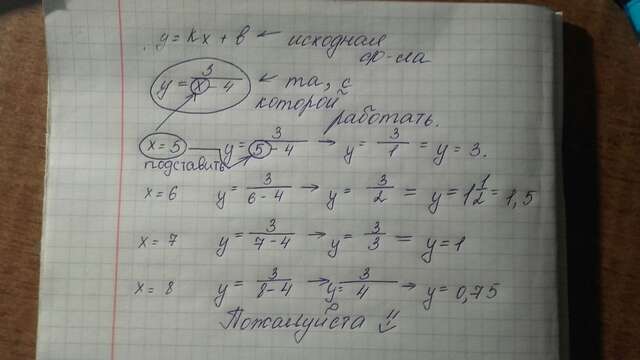 y = kx + b ← исходная
ф-ла
y = 3/(x - 4) ← та, с
которой
работать.
x = 5 y = 3/(5 - 4) → y = 3/1 = y = 3.
подставить
x = 6 y = 3/(6 - 4) → y = 3/2 = y = 1 1/2 = 1,5
x = 7 y = 3/(7 - 4) → y = 3/3 = y = 1
x = 8 y = 3/(8 - 4) → y = 3/4 → y = 0,75
Пожалуйста